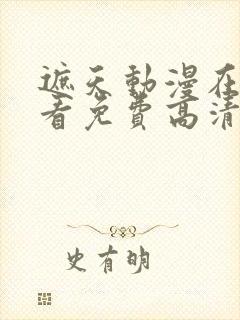 遮天動漫在
看免費高清
史有明